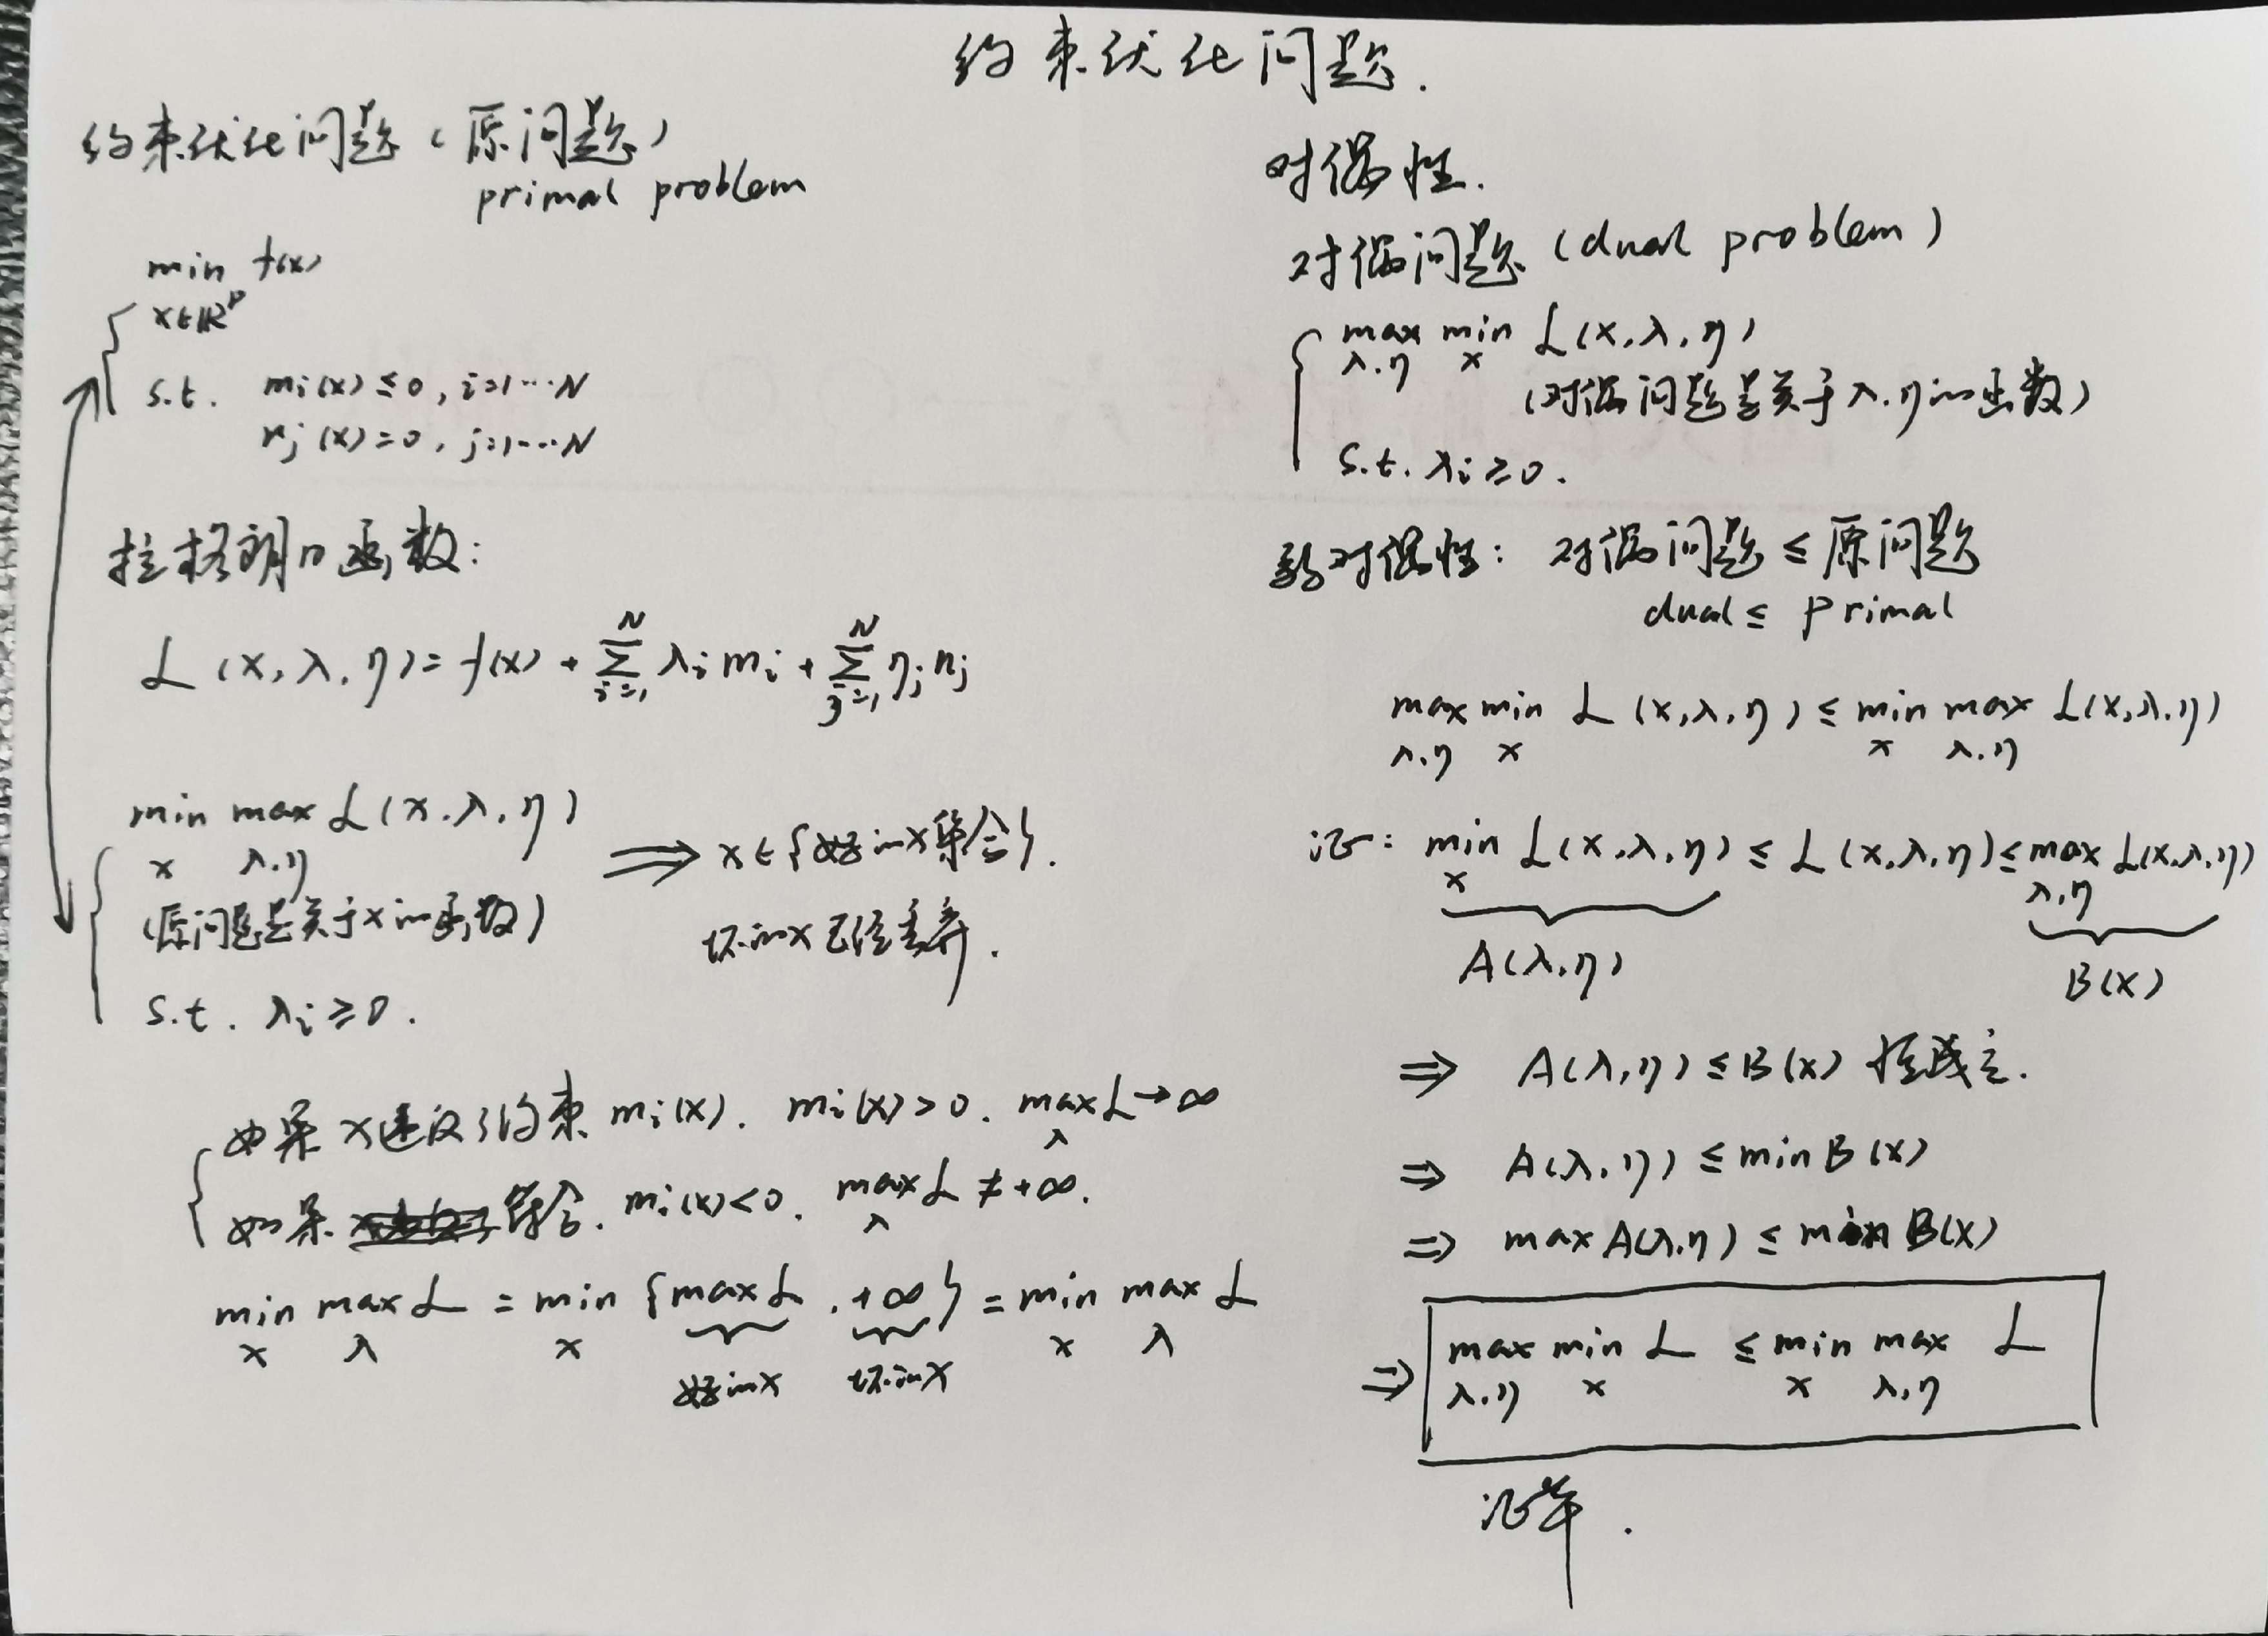 约束优化问题.
约束优化问题（原问题）
primal problem
min f(x)
x∈ℝᵖ
s.t. mi(x) ≤ 0, i=1…N
nj(x)=0, j=1…N
拉格朗日函数:
L(x, λ, η) = f(x) + Σ_{i=1}^{N} λi mi + Σ_{j=1}^{N} ηj nj
min max L(x, λ, η)
x λ,η
(原问题是关于x的函数)
s.t. λi ≥ 0.
⟹ x∈{好的x集合}.
坏的x已经丢弃.
如果x违反了约束 mi(x). mi(x)>0. max L→∞
λ
如果 符合. mi(x)<0. max L ≠ +∞.
λ
min max L = min {max L, +∞} = min max L
x λ x x λ
好的x 坏的x
对偶性.
对偶问题 (dual problem)
max min L(x, λ, η)
λ,η x
(对偶问题是关于λ,η的函数)
s.t. λi ≥ 0.
弱对偶性: 对偶问题 ≤ 原问题
dual ≤ primal
max min L(x, λ, η) ≤ min max L(x, λ, η)
λ,η x x λ,η
证: min L(x, λ, η) ≤ L(x, λ, η) ≤ max L(x, λ, η)
x λ,η
A(λ, η) B(x)
⇒ A(λ, η) ≤ B(x) 恒成立.
⇒ A(λ, η) ≤ min B(x)
⇒ max A(λ, η) ≤ min B(x)
⇒ max min L ≤ min max L
λ,η x x λ,η
证毕.